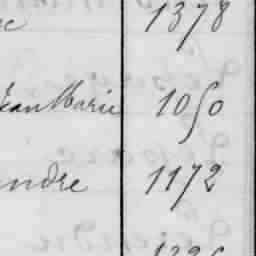 1378
Jean Marie 1050
ndre 1172